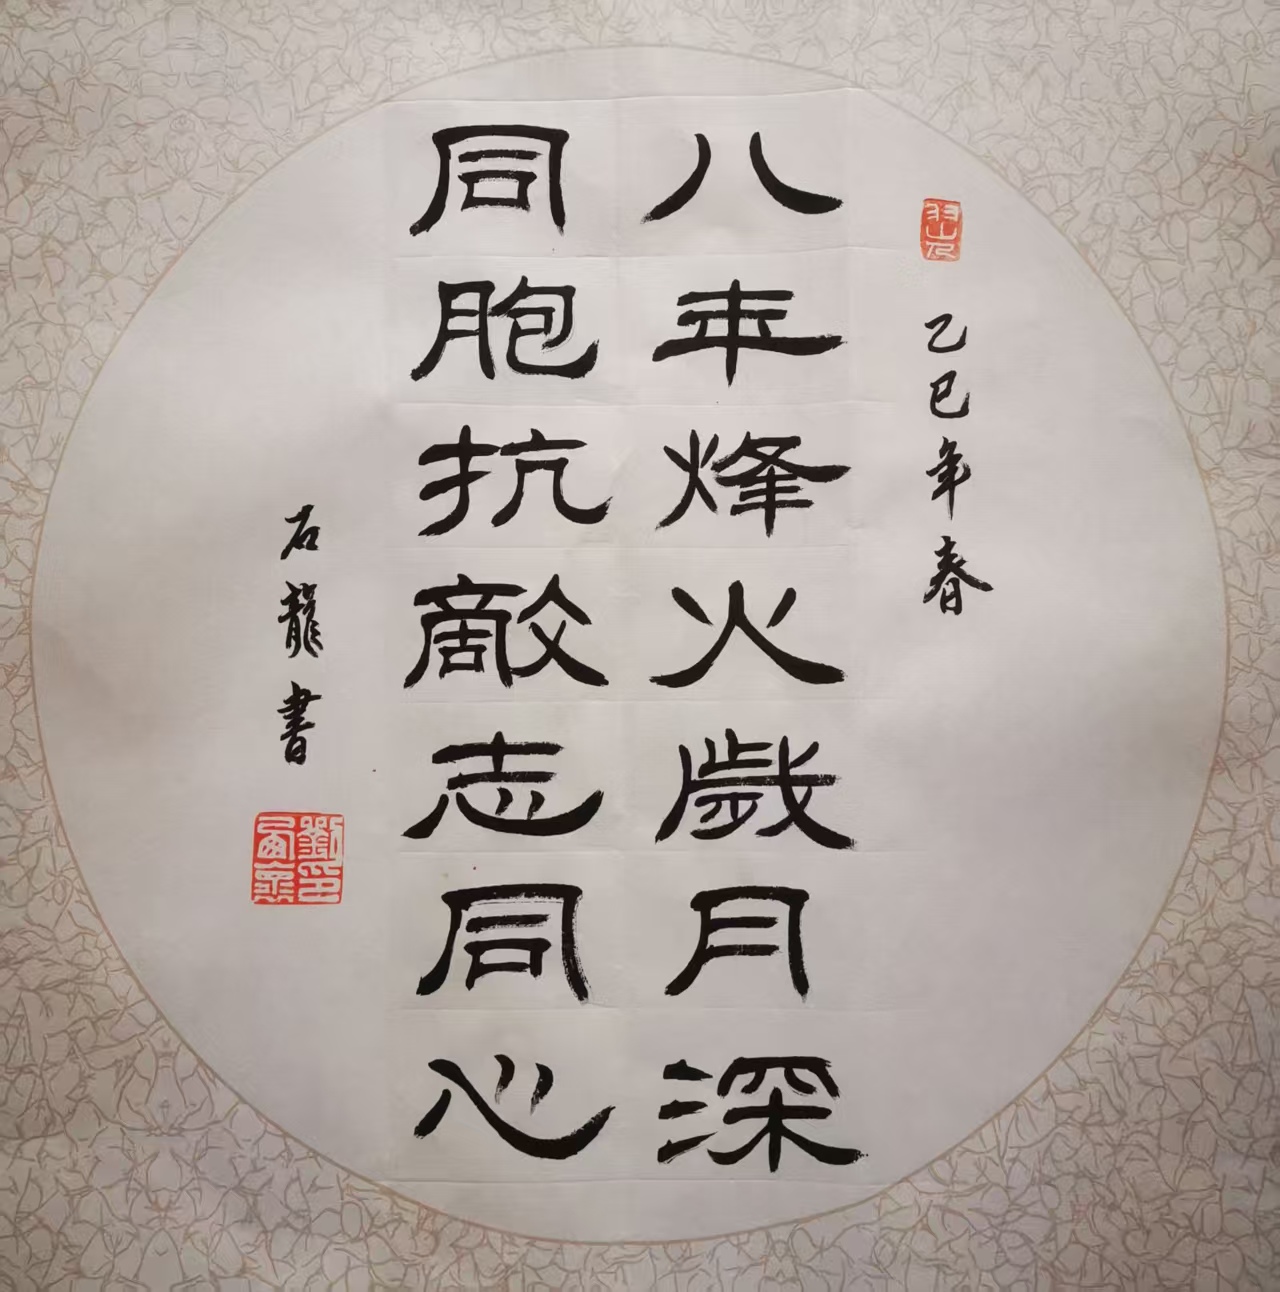 乙巳年春
八年烽火歲月深
同胞抗敵志同心
石龍書